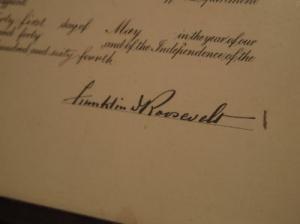 Department
ty first day of May in the year of our
nd forty and of the Independence of the
undred and sixty fourth.
Franklin D Roosevelt